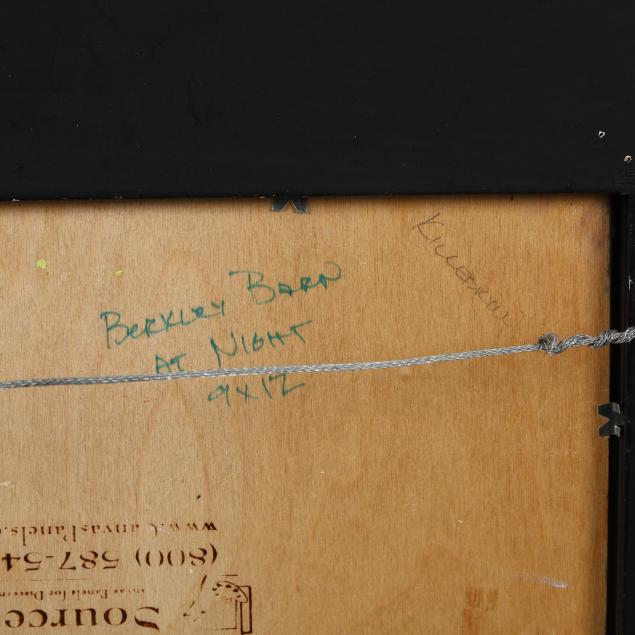 KILLEBREW
BERKLEY BARN
AT NIGHT
9X12
www.CanvasPanels.
(800) 587-54
Source